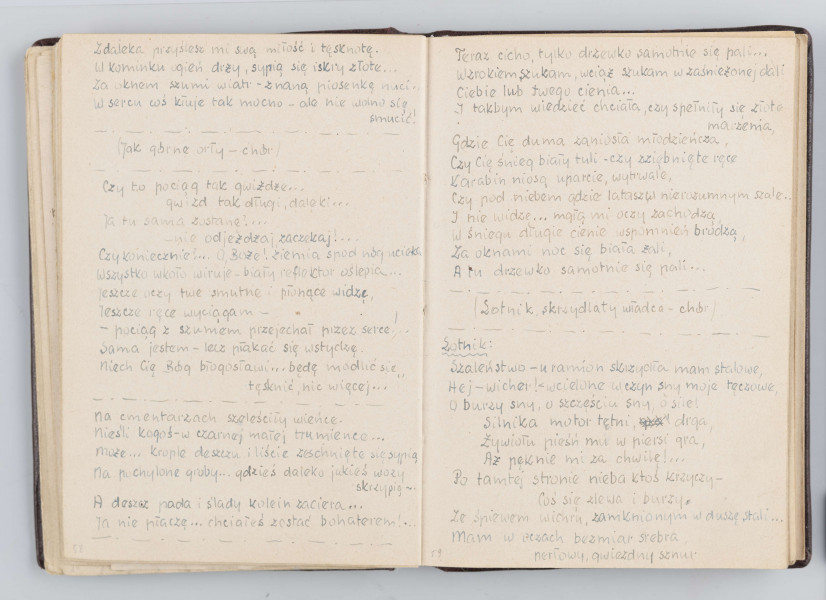 Zdaleka przyślesz mi swą miłość i tęsknotę.
W kominku ogień drży, sypią się iskry złote...
Za oknem szumi wiatr - znaną piosenkę nuci..
W sercu coś kłuje tak mocno - ale nie wolno się
smucić!
(Jak górne orły - chór)
Czy to pociąg tak gwiżdże...
gwizd tak długi, daleki...
Ja tu sama zostanę!...
- nie odjeżdżaj zaczekaj!...
Czy koniecznie!... O, Boże! ziemia spod nóg ucieka
Wszystko wkoło wiruje - biały reflektor oślepia...
Jeszcze oczy twe smutne i płonące widzę,
Jeszcze ręce wyciągam -
- pociąg z szumem przejechał przez serce!...
Sama jestem - lecz płakać się wstydzę.
Niech Cię Bóg błogosławi... będę modlić się,,
tęsknić, nic więcej...
Na cmentarzach szeleściły wieńce.
Nieśli kogoś - w czarnej małej trumience...
Może... krople deszczu i liście zeschnięte się sypią
Na pochylone groby... gdzieś daleko jakieś wozy
skrzypią -.
A deszcz pada i ślady kolein zaciera...
Ja nie płaczę... chciałeś zostać bohaterem!...
Teraz cicho, tylko drzewko samotnie się pali...
Wzrokiem szukam, wciąż szukam w zaśnieżonej dali
Ciebie lub twego cienia...
I takbym wiedzieć chciała, czy spełniły się złote
marzenia,
Gdzie Cię duma zaniosła młodzieńcza,
Czy Cię śnieg biały tuli - czy zziębnięte ręce
Karabin niosą uparcie, wytrwale,
Czy pod niebem gdzie latasz w nierozumnym szale..
I nie widzę... mgłą mi oczy zachodzą,
W śniegu długie cienie wspomnień brodzą,
Za oknami noc się biała żali,
A tu drzewko samotnie się pali...
(Lotnik, skrzydlaty władca - chór)
Lotnik:
Szaleństwo - u ramion skrzydła mam stalowe,
Hej - wicher! - wcielone w czyn sny moje tęczowe,
O burzy sny, o szczęściu sny, o sile!
Silnika motor tętni, drga,
Żywiołu pieśń mi w piersi gra,
Aż pęknie mi za chwilę!...
Po tamtej stronie nieba ktoś krzyczy -
Coś się zlewa i burzy.
Ze śpiewem wichru, zamkniętym w duszę stali...
Mam w oczach bezmiar srebra
perłowy, gwiezdny sznur
59